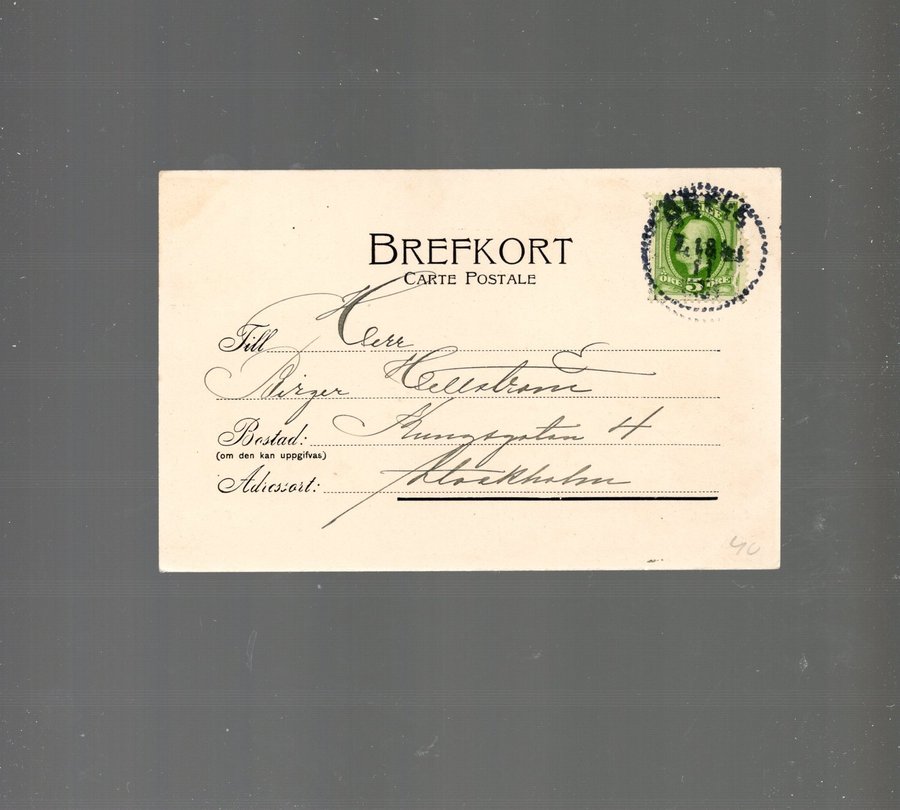 BREFKORT
CARTE POSTALE
ÖRE 5 ÖRE
Till Herr
Birger Hellström
Bostad: Kungsgatan 4
(om den kan uppgifvas)
Adressort: Stockholm
40